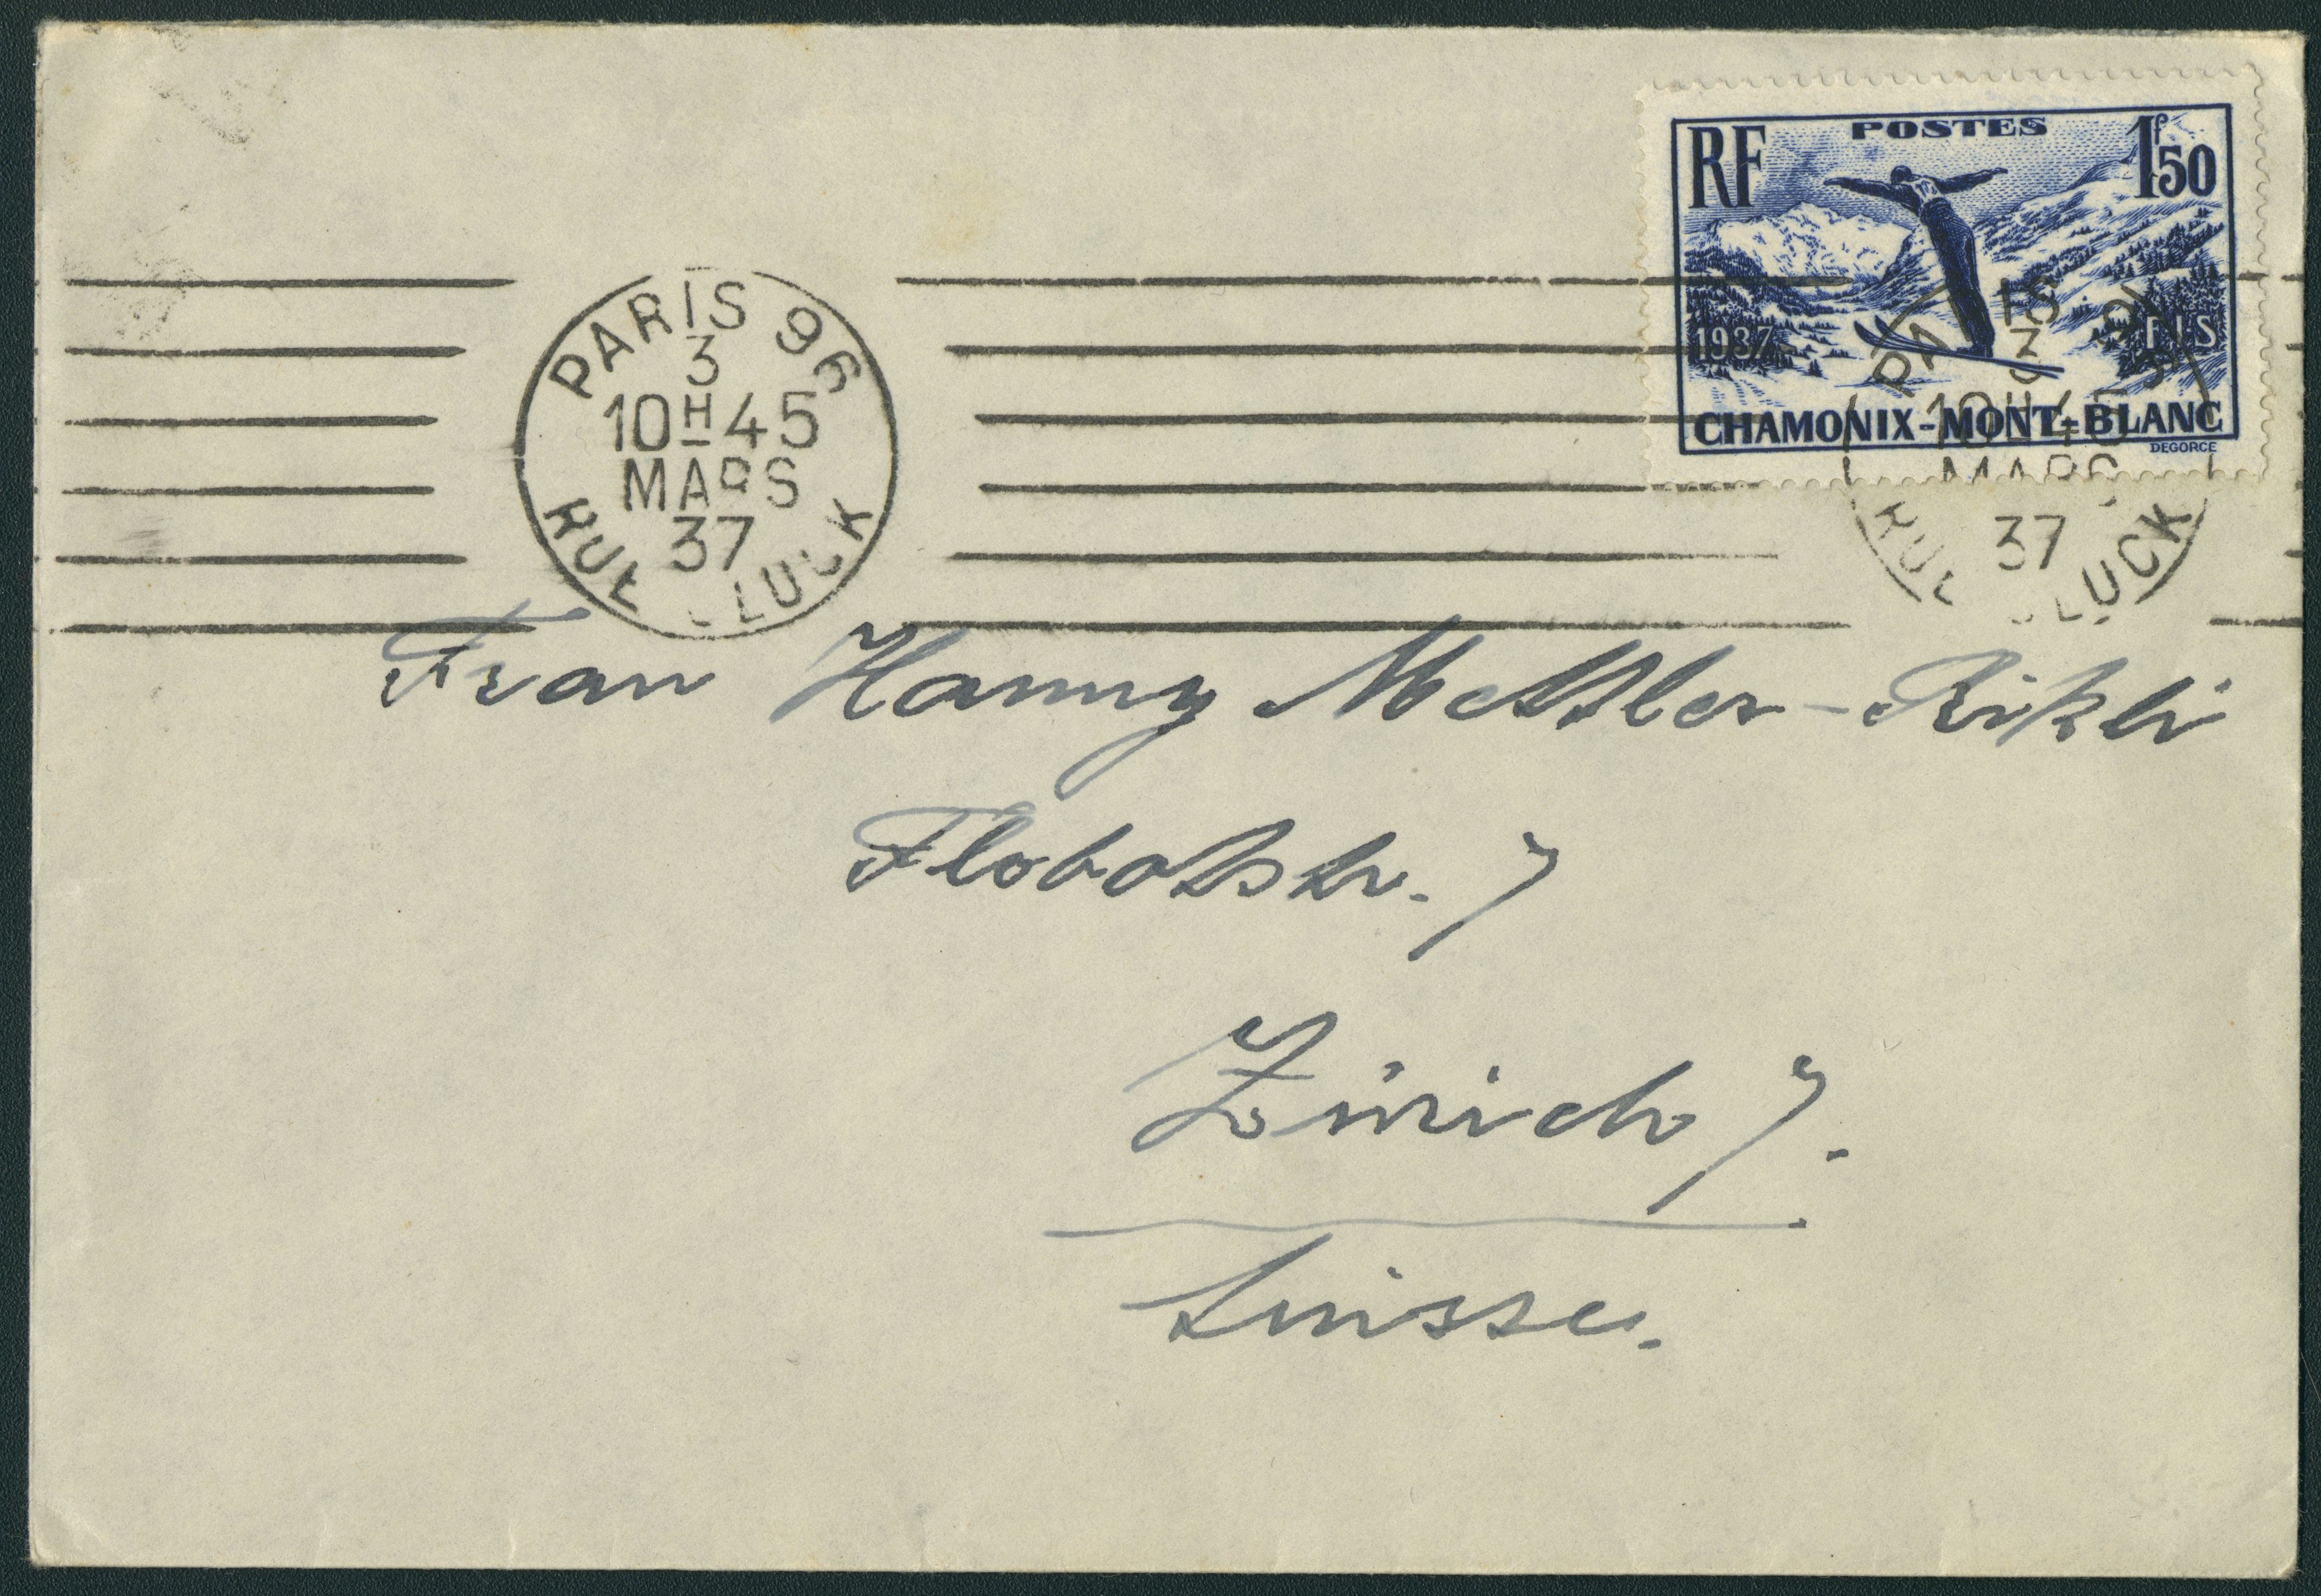 RF POSTES 1f50
1937 FIS
CHAMONIX-MONT-BLANC
DEGORCE
PARIS 96
3
10H45
MARS
37
RUE GLUCK
PARIS 96
3
10H45
MARS
37
RUE GLUCK
Frau Hanny Mettler-Rikli
Flobotstr. 7
Zürich 7.
Suisse.